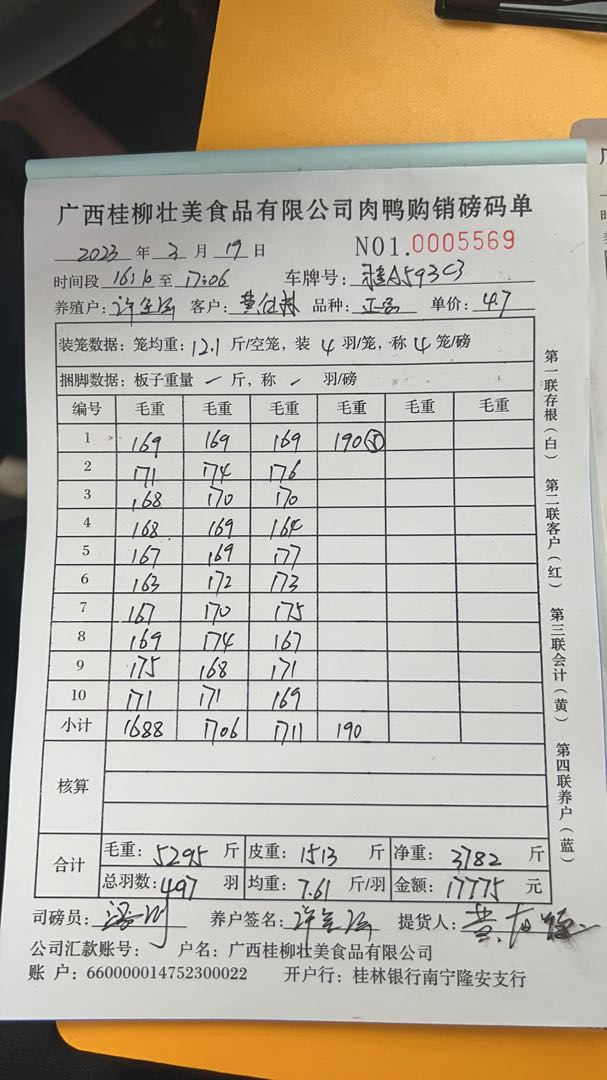 广西桂柳壮美食品有限公司肉鸭购销磅码单
2023 年 3 月 19 日 NO1.0005569
时间段 16:10 至 17:06 车牌号: 桂A593C3
养殖户: 客户: 品种: 单价: 4.7
装笼数据: 笼均重: 12.1 斤/空笼, 装 4 羽/笼, 称 4 笼/磅
捆脚数据: 板子重量 — 斤, 称 — 羽/磅
编号 毛重 毛重 毛重 毛重 毛重 毛重
1 169 169 169 190⑤
2 171 174 176
3 168 170 170
4 168 169 164
5 167 169 177
6 163 172 173
7 167 170 175
8 169 174 167
9 175 168 171
10 171 171 169
小计 1688 1706 1711 190
核算
合计 毛重: 5295 斤 皮重: 1513 斤 净重: 3782 斤
总羽数: 497 羽 均重: 7.61 斤/羽 金额: 17775 元
司磅员: 养户签名: 提货人:
公司汇款账号: 户名: 广西桂柳壮美食品有限公司
账 户: 660000014752300022 开户行: 桂林银行南宁隆安支行
第一联存根(白) 第二联客户(红) 第三联会计(黄) 第四联养户(蓝)
广